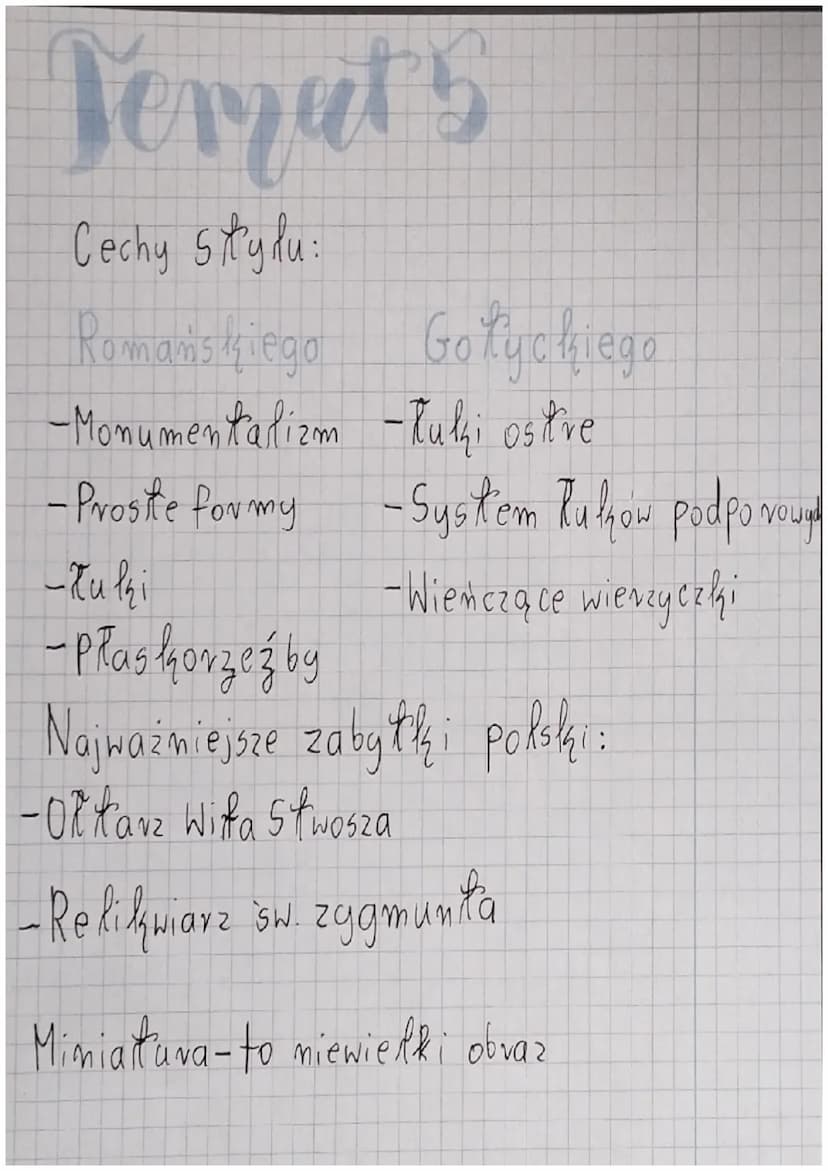 Temat 5
Cechy stylu:
Romańskiego Gotyckiego
-Monumentalizm -Łuki ostre
-Proste formy -System Łuków podporowych
-Łuki -Wieńczące wierzyczki
-Płaskorzeźby
Najważniejsze zabytki polski:
-Ołtarz Wita Stwosza
-Relikwiarz św. zygmunta
Miniatura-to niewielki obraz